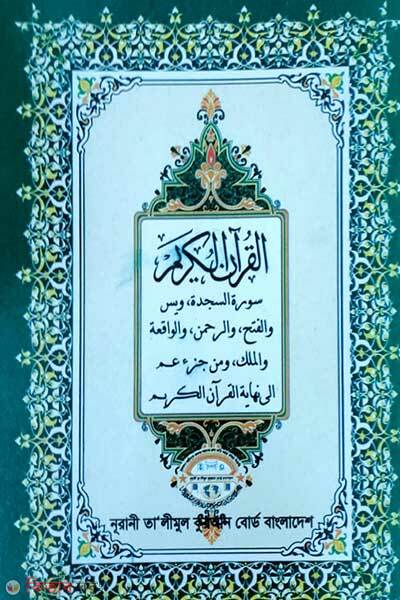 القرآن الكريم
سورة السجدة، ويس
والفتح، والرحمن، والواقعة
والملك، ومن جزء عم
الى نهاية القرآن الكريم
নূরানী তা'লীমুল কুরআন বোর্ড বাংলাদেশ